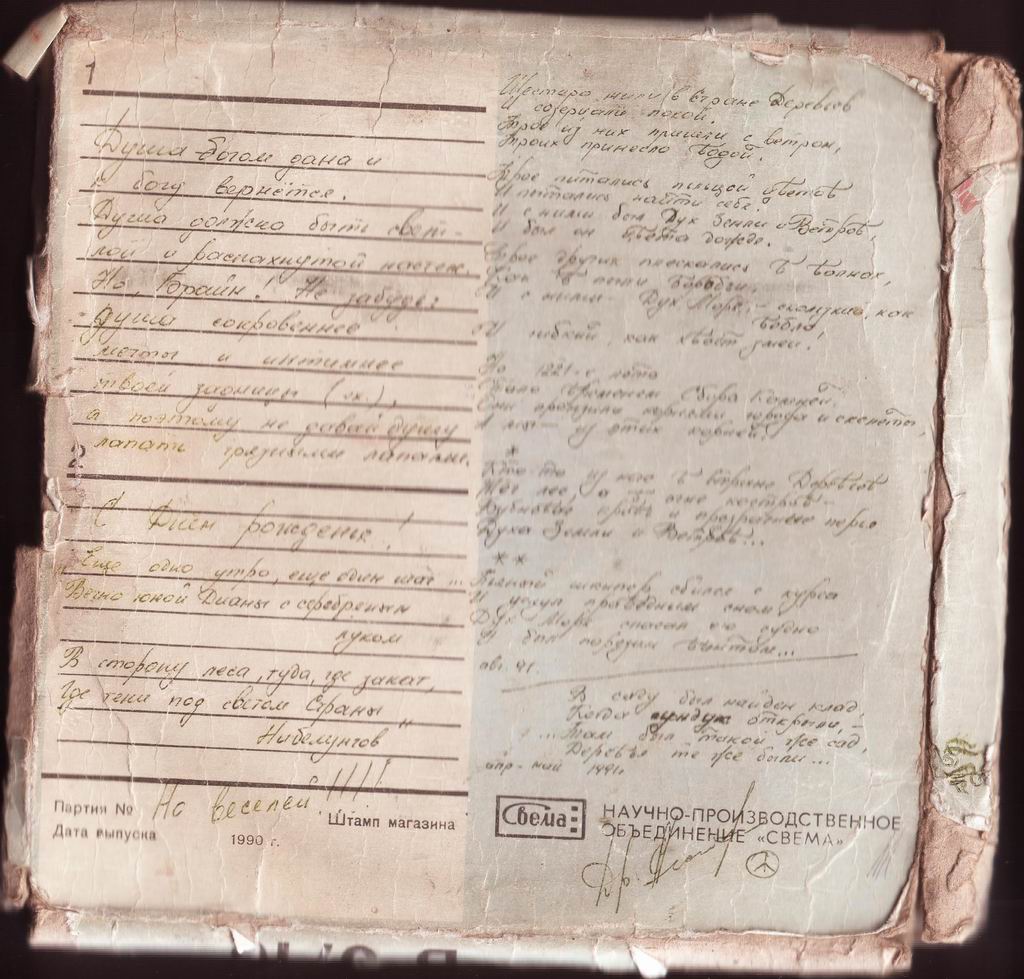 1
Душа Богом дана и
к богу вернётся.
Душа должна быть свет-
лой и распахнутой настеж.
Но, Брайн! Не забудь:
Душа сокровеннее
мечты и интимнее
твоей задницы (ох.),
а поэтому не давай душу
лапать грязными лапами.
2
С Днём рожденья!
"Еще одно утро, еще один шаг...
Вечно юной Дианы с серебреным
луком
В сторону леса, туда, где закат,
Где тени под светом Страны
Нибелунгов"
Но веселей!!!!
Партия №
Штамп магазина
Дата выпуска
1990 г.
Шестеро жили в Стране Деревьев
И созерцали покой.
Трое из них пришли с ветром,
Троих принесло водой.
Трое питались пыльцой цветов
И пытались найти себя.
И с ними был Дух Земли и Ветров,
И был он цвета дождя.
Трое других плескались в волнах,
И с ними Дух Моря, – скользкий, как
вобла
И гибкий, как хвост змеи!
Но 1221-е лето
Стало временем Сбора Камней.
Они пронзили корнями города и скелеты,
*
Кто-то из них в стране Деревьев
Жёг лес, а в огне костров –
Духа Земли и Ветров...
* *
Пьяный шкипер сбился с курса
И уснул праведным сном
Дух Моря спасал его судно
И был порезан винтом...
авг. 91.
В саду был найден клад,
Когда сундук открыли, –
... Там был такой же сад,
Деревья те же были...
апр-май 1991
Свема
НАУЧНО-ПРОИЗВОДСТВЕННОЕ
ОБЪЕДИНЕНИЕ «СВЕМА»